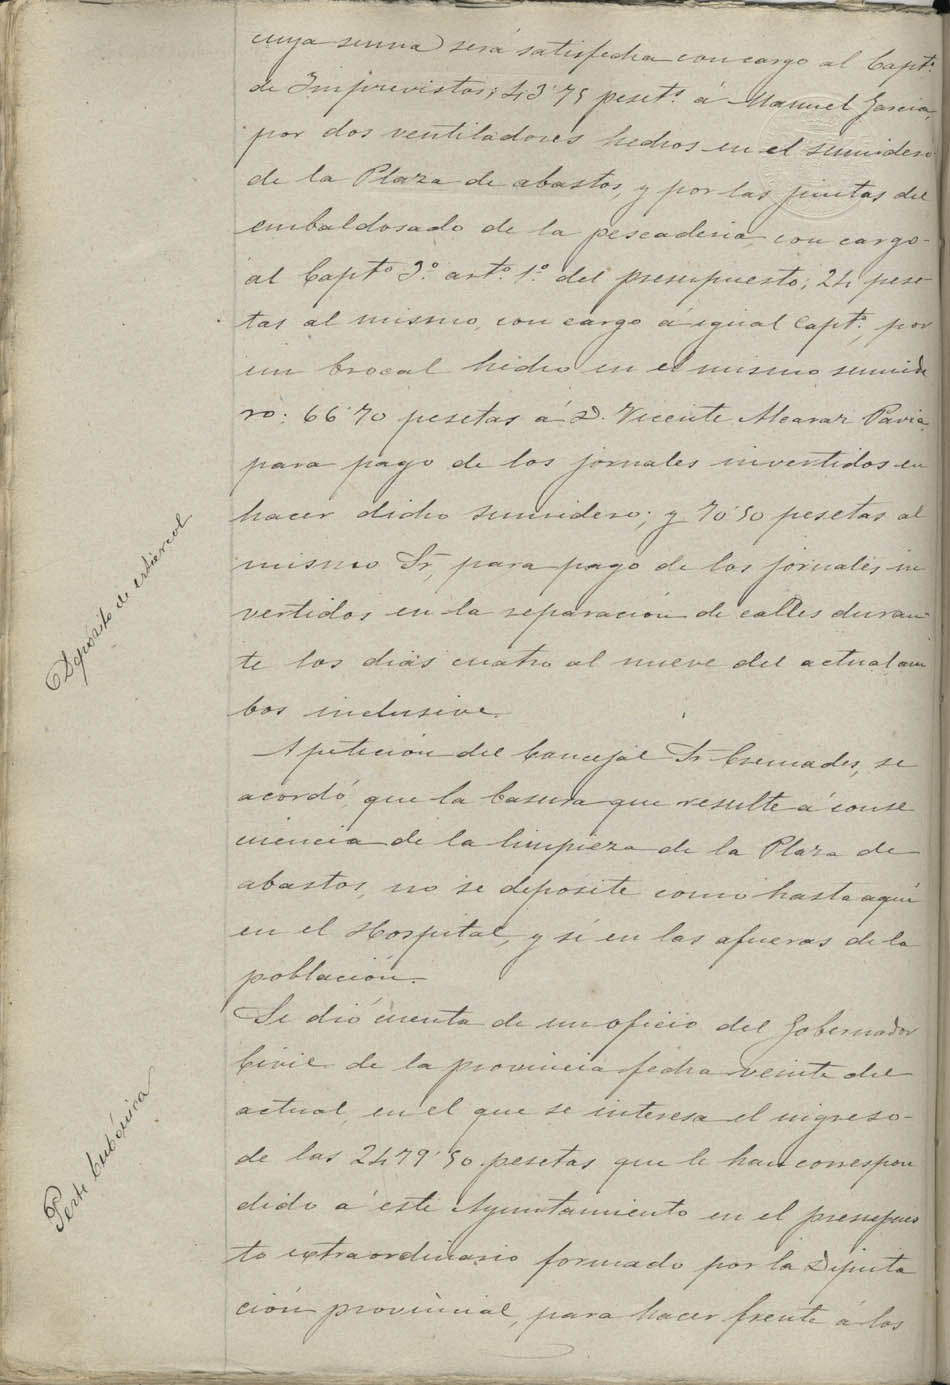 cuya suma) será satisfecha con cargo al Capt.º
de Imprevistos; 43'75 peset.s á Manuel Garcia,
por dos ventiladores hechos en el sumidero
de la Plaza de abastos, y por las juntas del
embaldosado de la pescaderia, con cargo-
al Capt.º 3.º art.º 1.º del presupuesto; 24 pese-
tas al mismo, con cargo á igual Capt.º, por
un brocal hecho en el mismo sumide
ro; 66'70 pesetas á D. Vicente Alcaraz Pavia,
para pago de los jornales invertidos en
hacer dicho sumidero; y 70'50 pesetas al
mismo Sr, para pago de los jornales in
vertidos en la reparación de calles duran-
te los dias cuatro al nueve del actual am
bos inclusive.
Depósito de estiércol
A petición del Concejal Sr Cremades, se
acordó que la basura que resulte á conse
cuencia de la limpieza de la Plaza de
abastos, no se deposite como hasta aquí
en el Hospital, y sí en las afueras de la
población.
Peste bubónica
Se dió cuenta de un oficio del Gobernador
Civil de la provincia fecha veinte del
actual, en el que se interesa el ingreso-
de las 2479'50 pesetas que le han correspon
dido á este Ayuntamiento en el presupues
to extraordinario formado por la Diputa
ción provincial, para hacer frente á los